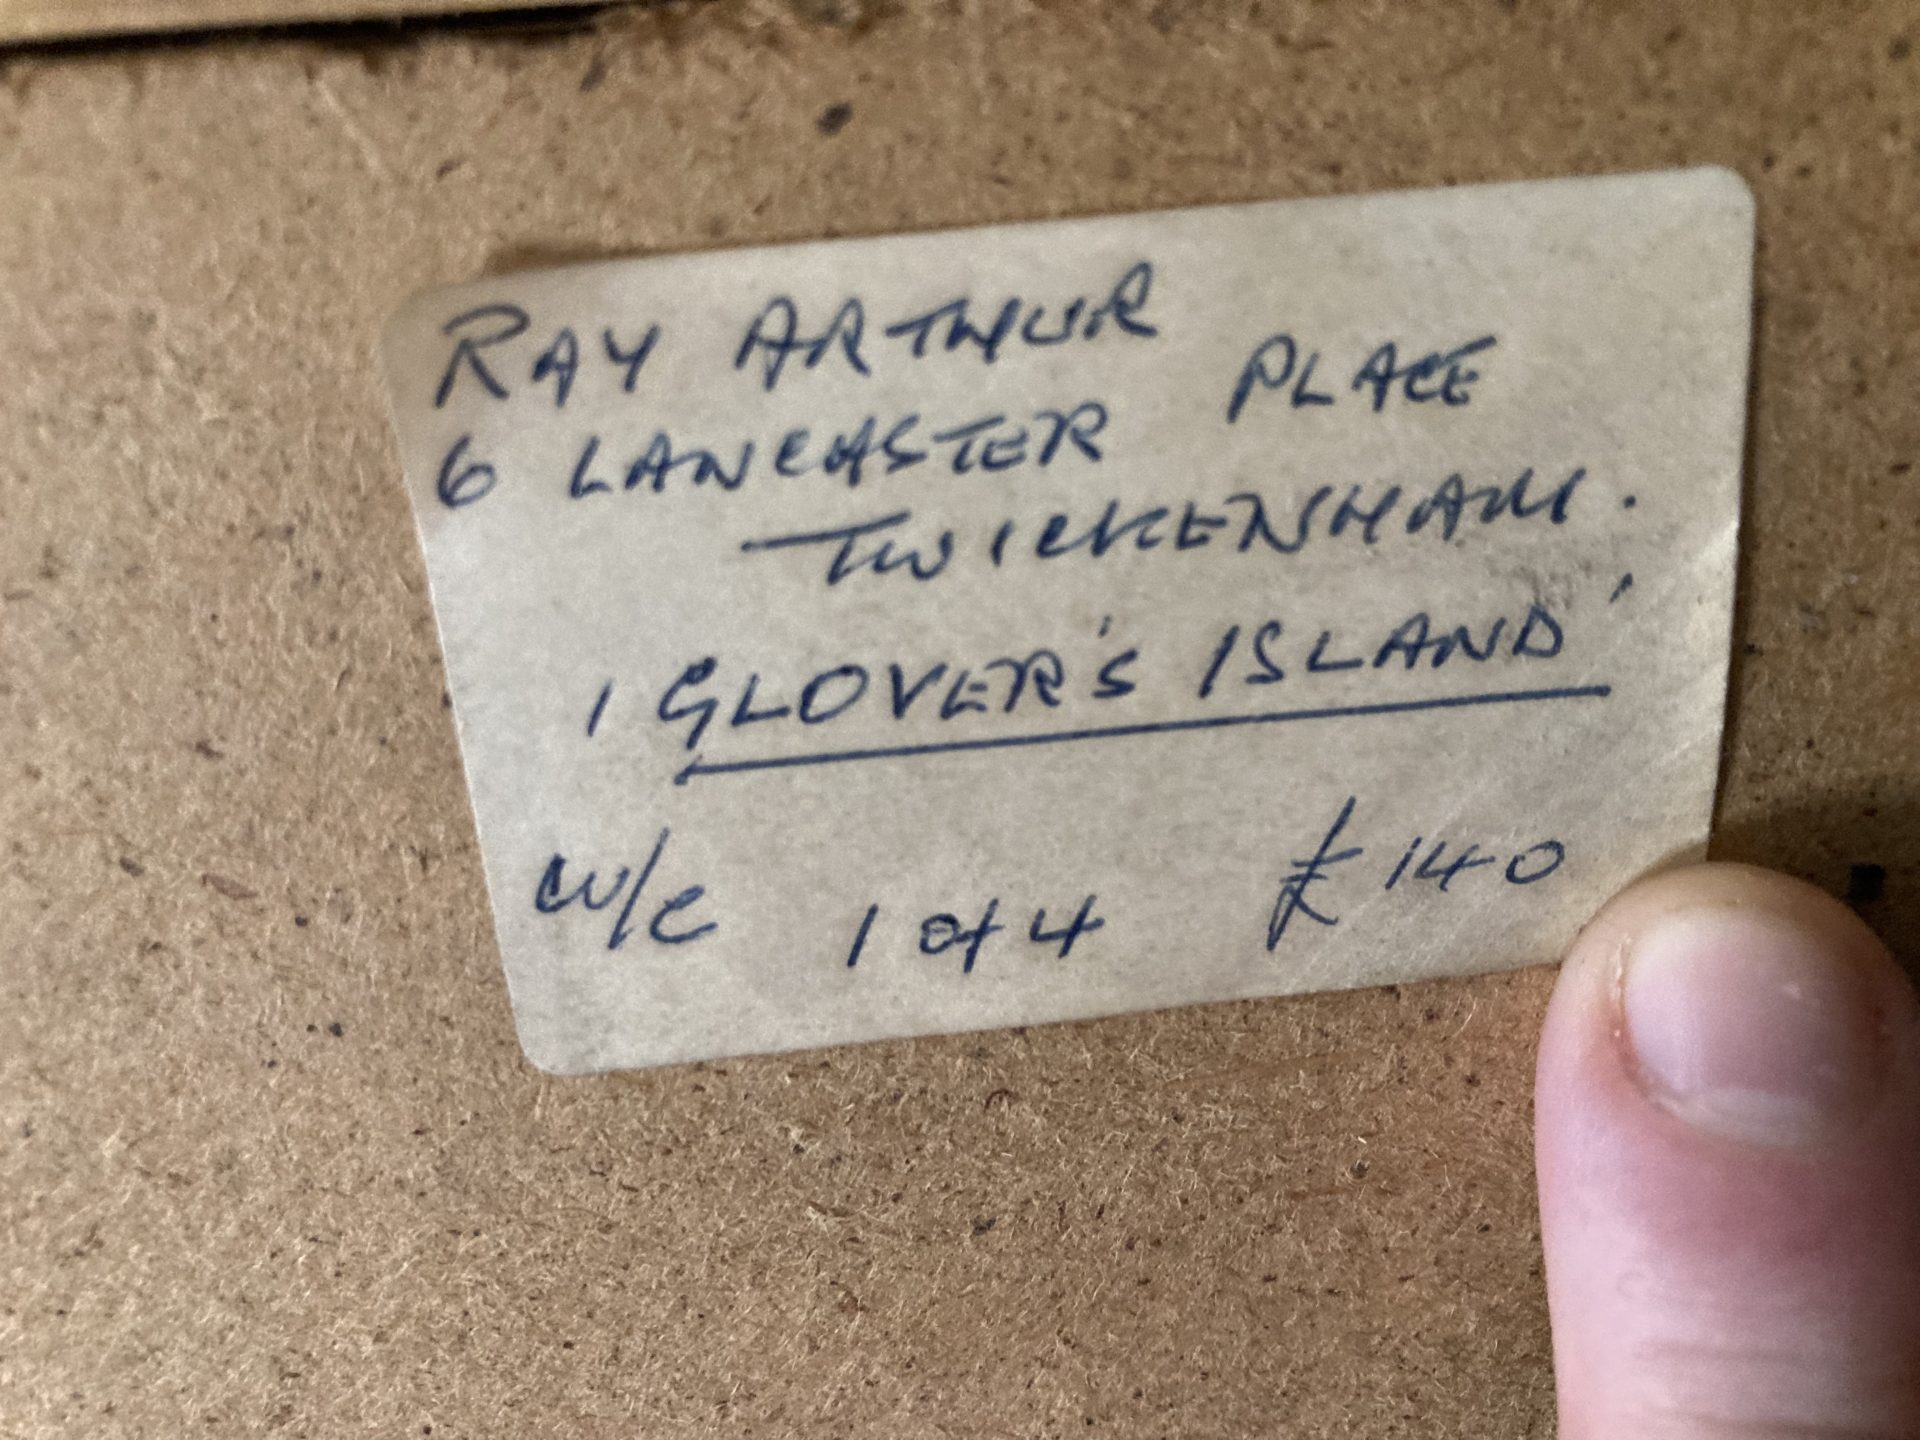 RAY ARTHUR
6 LANCASTER PLACE
TWICKENHAM.
'GLOVER'S ISLAND'
W/C 1 of 4 £140